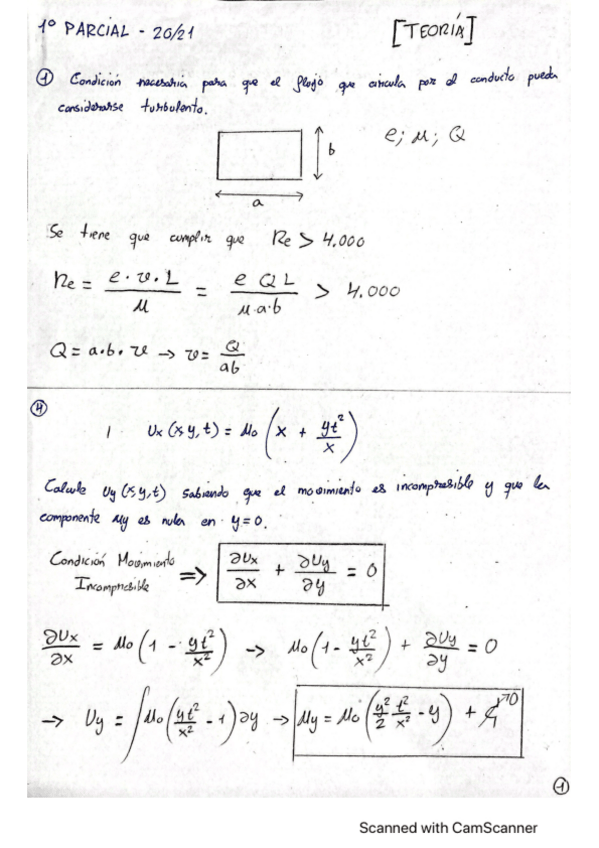 1º PARCIAL - 20/21 [TEORÍA]
① Condición necesaria para que el flujo que circula por el conducto pueda
considerarse turbulento.
e; μ; Q
b
a
Se tiene que cumplir que Re > 4.000
Re = e·v·L / μ = e Q L / μ·a·b > 4.000
Q = a·b·v → v = Q / ab
④
Ux (x y, t) = μo (x + yt² / x)
Calcule Uy (x y, t) sabiendo que el movimiento es incompresible y que la
componente μy es nula en y = 0.
Condición Movimiento
Incompresible ⇒ ∂Ux / ∂x + ∂Uy / ∂y = 0
∂Ux / ∂x = μo (1 - yt² / x²) → μo (1 - yt² / x²) + ∂Uy / ∂y = 0
→ Uy = ∫ μo (yt² / x² - 1) ∂y → μy = μo (y² / 2 t² / x² - y) + C₁ ↗0
①
Scanned with CamScanner